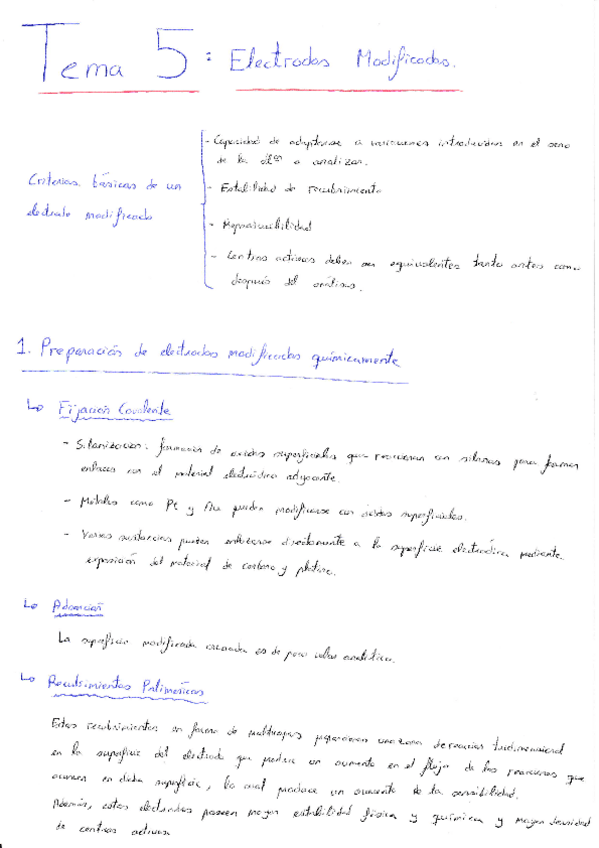 Tema 5: Electrodos Modificados.
Criterios básicos de un
electrodo modificado
- Capacidad de adaptarse a variaciones introducidas en el seno
de la dlón a analizar.
- Estabilidad de recubrimiento
- Reproducibilidad
- Centros activos deben ser equivalentes tanto antes como
después del análisis.
1. Preparación de electrodos modificados químicamente
↳ Fijación Covalente
- Silanización: formación de óxidos superficiales que reaccionan con silanos para formar
enlaces con el material electródico adyacente.
- Metales como Pt y Au pueden modificarse con óxidos superficiales.
- Varias sustancias pueden enlazarse directamente a la superficie electródica mediante
exposición del material de carbono y platino.
↳ Adsorción
La superficie modificada creada es de poco valor analítico.
↳ Recubrimientos Poliméricos
Estos recubrimientos en forma de multicapas proporcionan una zona de reacción tridimensional
en la superficie del electrodo que produce un aumento en el flujo de las reacciones que
ocurren en dicha superficie, lo cual produce un aumento de la sensibilidad.
Además, estos electrodos poseen mayor estabilidad física y química y mayor densidad
de centros activos